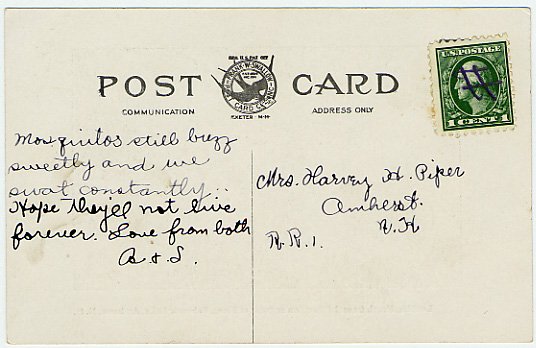 POST CARD
FRANK W. SWALLOW
POST CARD CO. INC.
EXETER - N-H
COMMUNICATION
ADDRESS ONLY
U.S. POSTAGE
1 CENT 1
Mosquitos still buzz
sweetly and we
swat constantly..
Hope they'll not live
forever. Love from both
A & S.
Mrs. Harvey H. Piper
Amherst.
N.H
R.R.1.